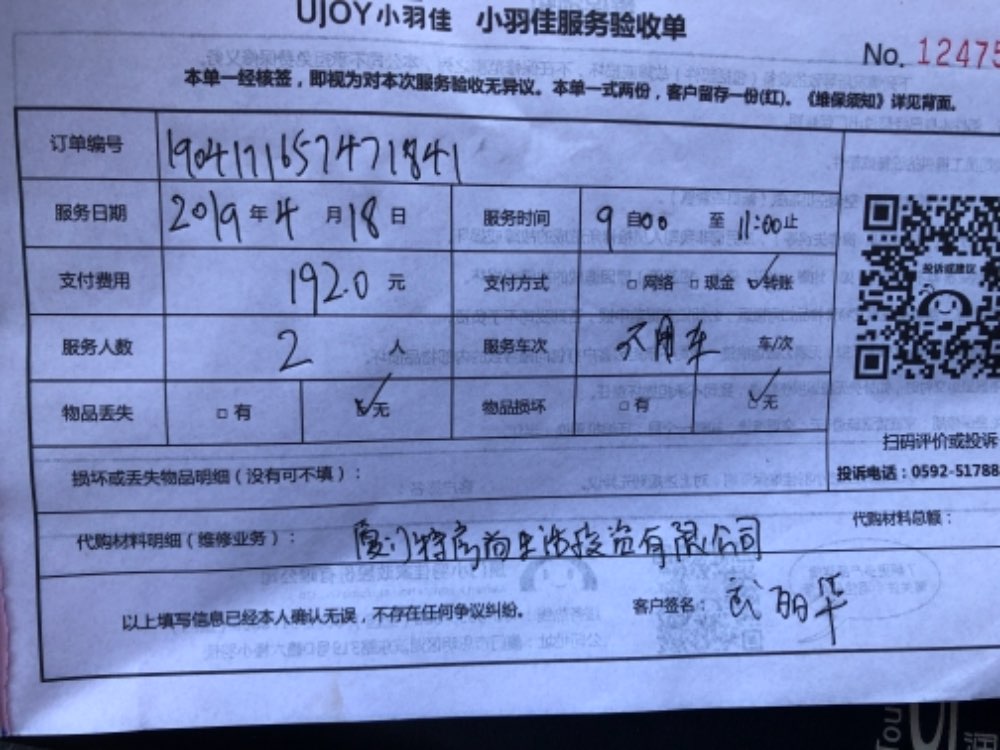 UJOY小羽佳 小羽佳服务验收单
No. 12475
本单一经核签，即视为对本次服务验收无异议。本单一式两份，客户留存一份(红)。《维保须知》详见背面。
订单编号 1904171657471841
服务日期 2019年4月18日 服务时间 9自00至11:00止
支付费用 192.0元 支付方式 □网络 □现金 ☑转账
投诉或建议
服务人数 2人 服务车次 不用车 车/次
物品丢失 □有 ☑无 物品损坏 □有 ☑无
扫码评价或投诉
损坏或丢失物品明细（没有可不填）：
投诉电话：0592-51788
代购材料明细（维修业务）： 厦门特房尚生活投资有限公司
代购材料总额：
以上填写信息已经本人确认无误，不存在任何争议纠纷。 客户签名：